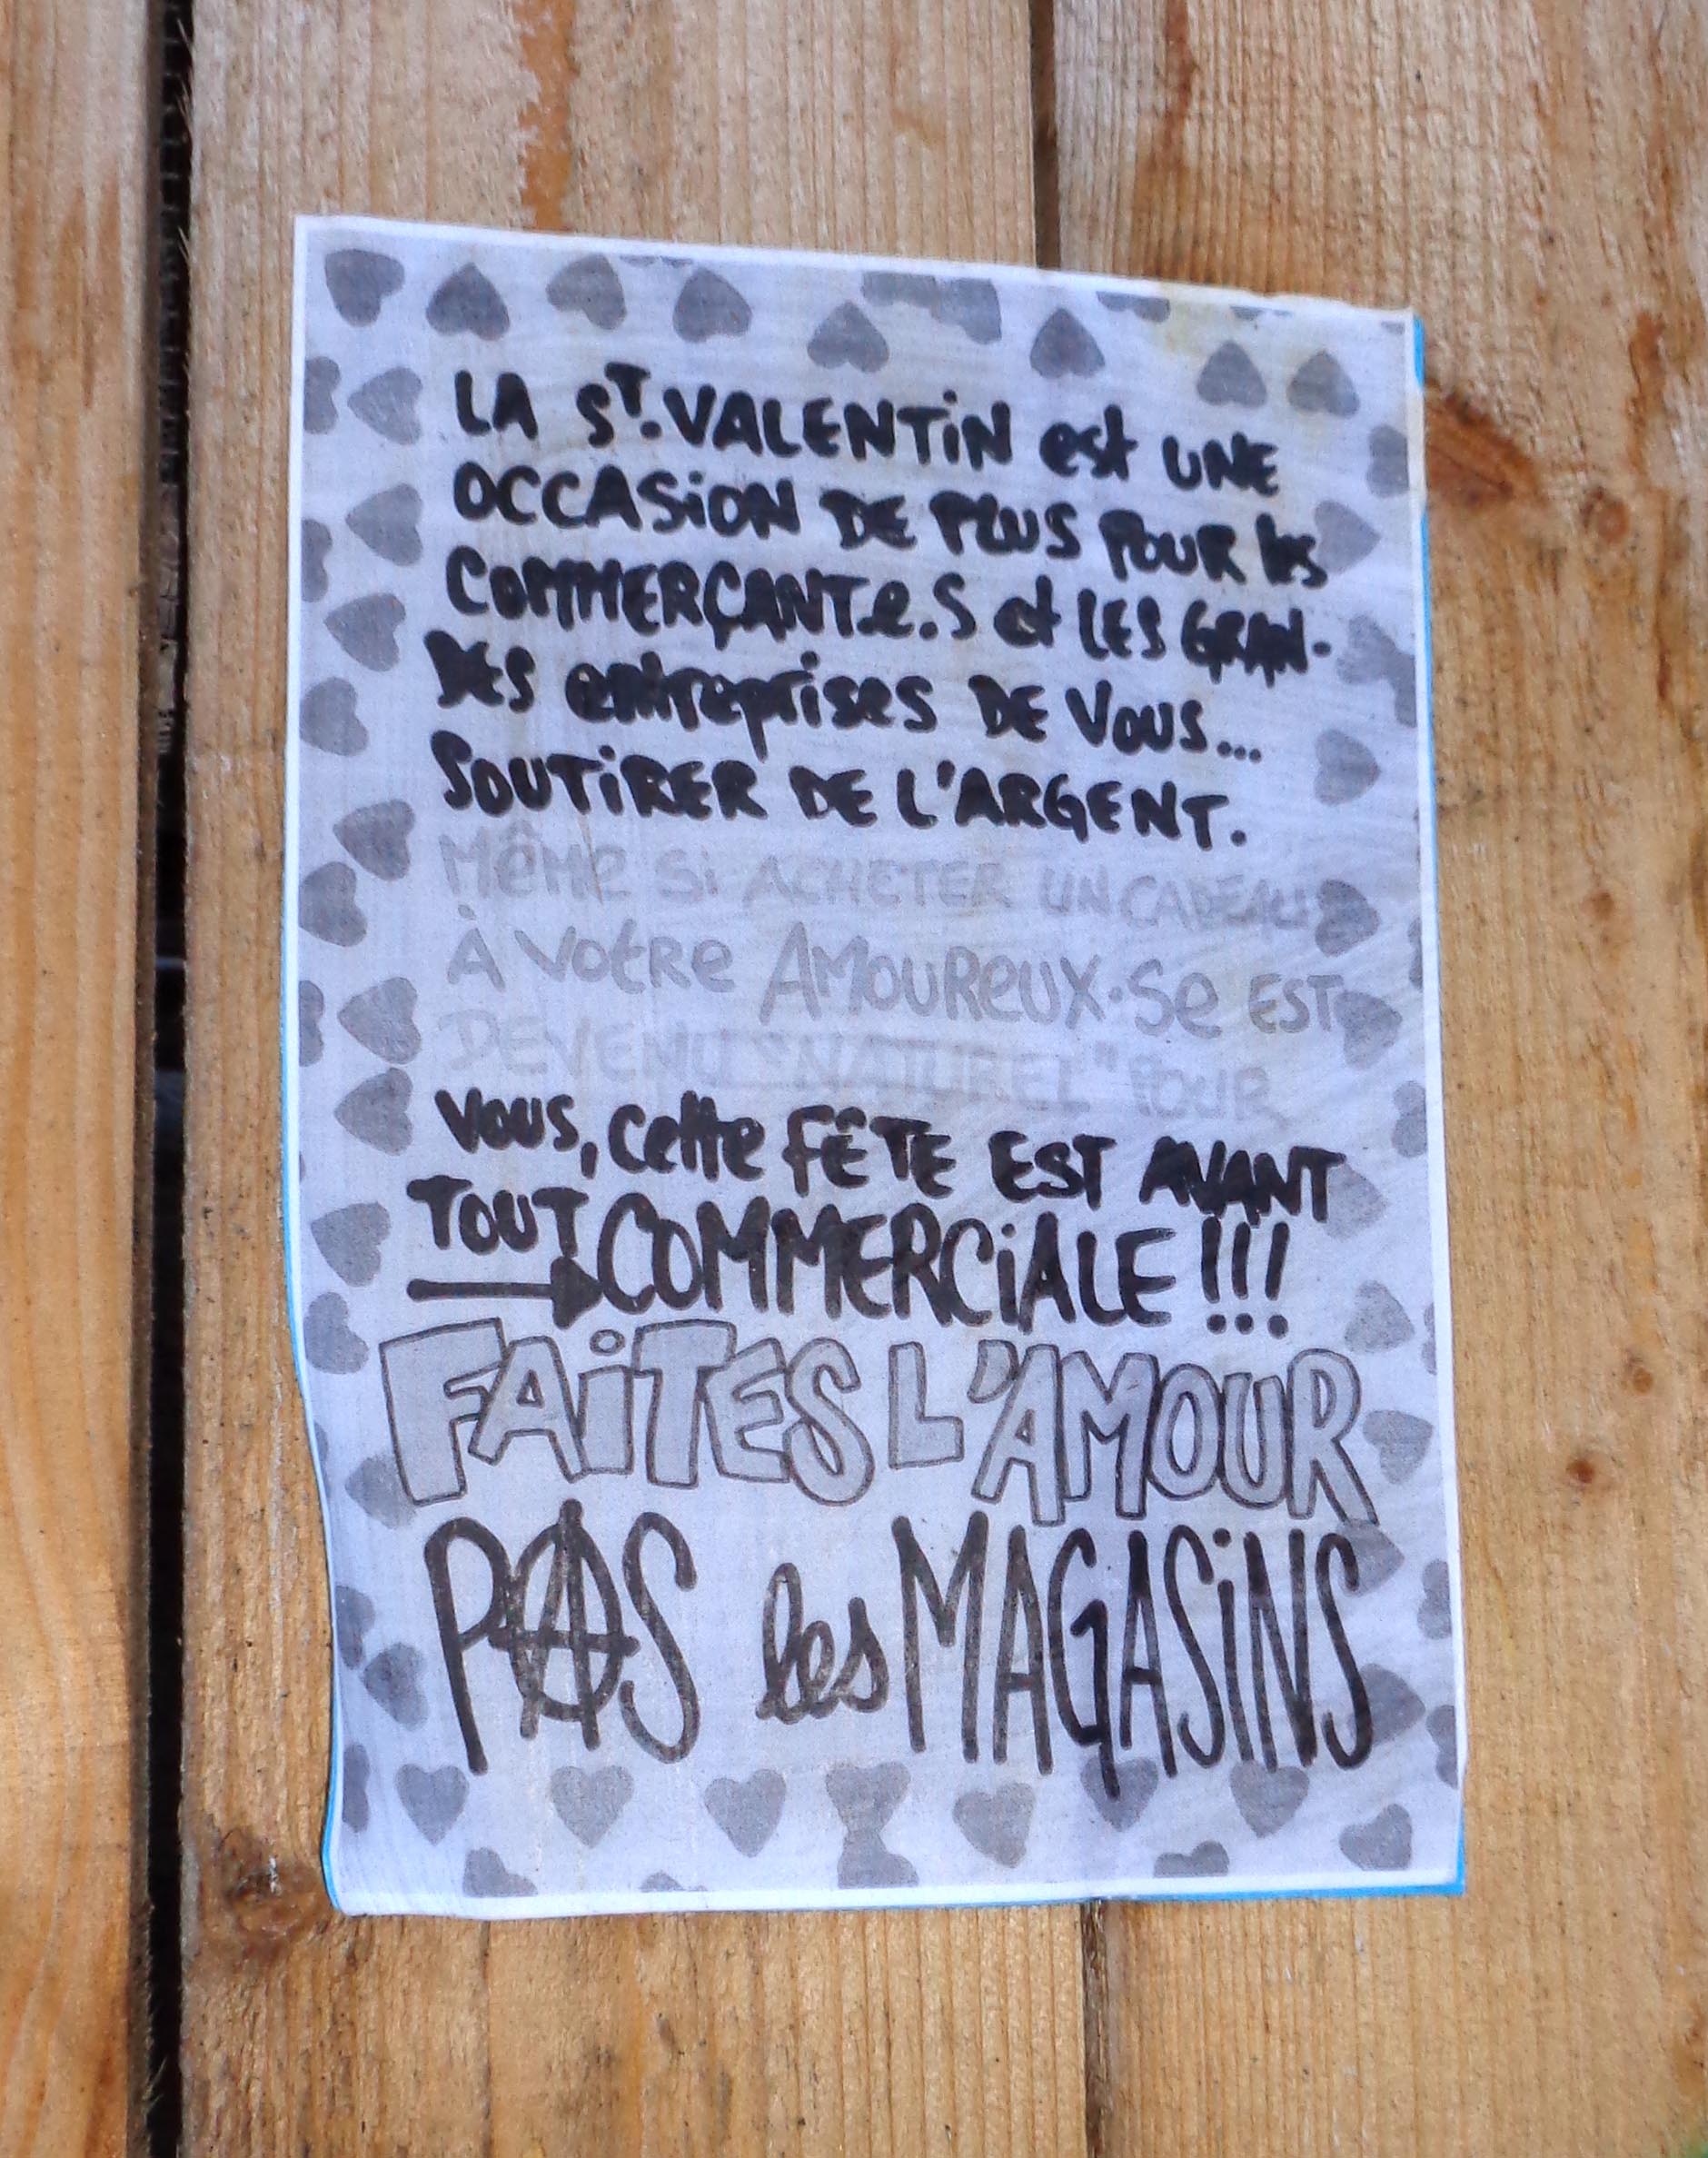 LA ST.VALENTiN est UNE
OCCASiON DE PLUS POUR les
COMMERÇANT.e.S et LES GRAN-
DES entreprises DE VOUS...
SOUTiRER DE L'ARGENT.
MêMe Si ACHETER UN CADEAU
À VOtRe AMOUReUX.Se EST
DEVENU "NATUREL" POUR
VOUS, Cette FÊTE EST AVANT
TOUT COMMERCiALE !!!
FAiTES L'AMOUR
PAS les MAGASiNS